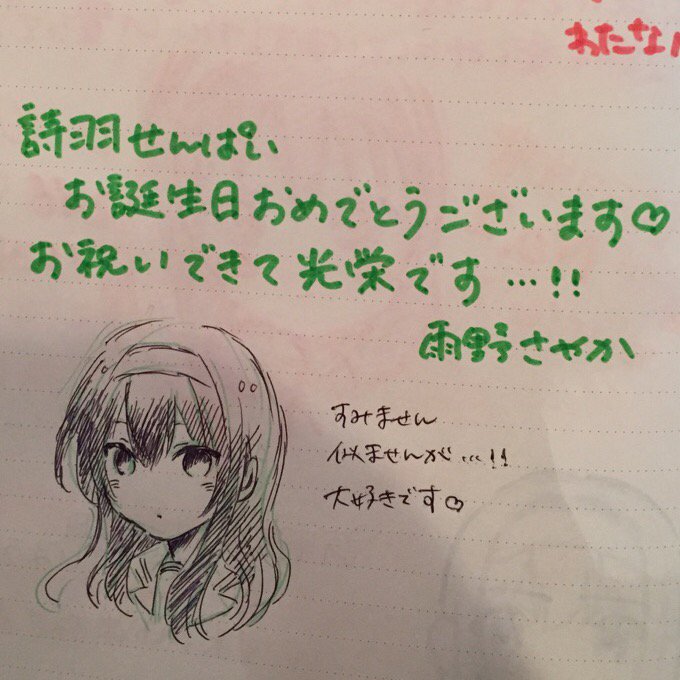 わたな
詩羽せんぱい
お誕生日おめでとうございます♡
お祝いできて光栄です…!!
雨野さやか
すみません
似ませんが…!!
大好きです♡